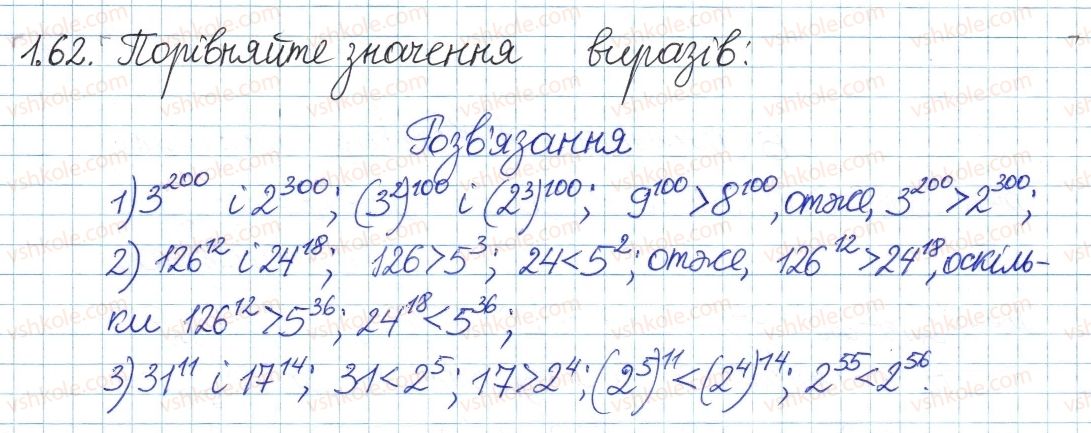 1.62. Порівняйте значення виразів:
Розв'язання
1) 3²⁰⁰ і 2³⁰⁰; (3²)¹⁰⁰ і (2³)¹⁰⁰; 9¹⁰⁰ > 8¹⁰⁰, отже, 3²⁰⁰ > 2³⁰⁰;
2) 126¹² і 24¹⁸; 126 > 5³; 24 < 5²; отже, 126¹² > 24¹⁸, оскіль-
ки 126¹² > 5³⁶; 24¹⁸ < 5³⁶;
3) 31¹¹ і 17¹⁴; 31 < 2⁵; 17 > 2⁴; (2⁵)¹¹ < (2⁴)¹⁴; 2⁵⁵ < 2⁵⁶.